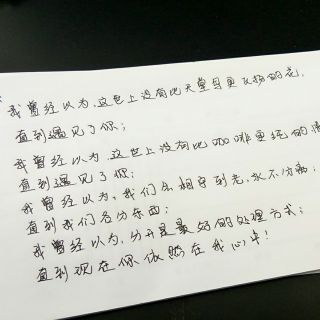 我曾经以为，这世上没有比天堂鸟更飞扬的花，
直到遇见了你；
我曾经以为，这世上没有比咖啡更纯的
直到遇见了你；
我曾经以为，我们会相守到老，永不分离；
直到我们各分东西；
我曾经以为，分开是最好的处理方式；
直到现在你依然在我心中！